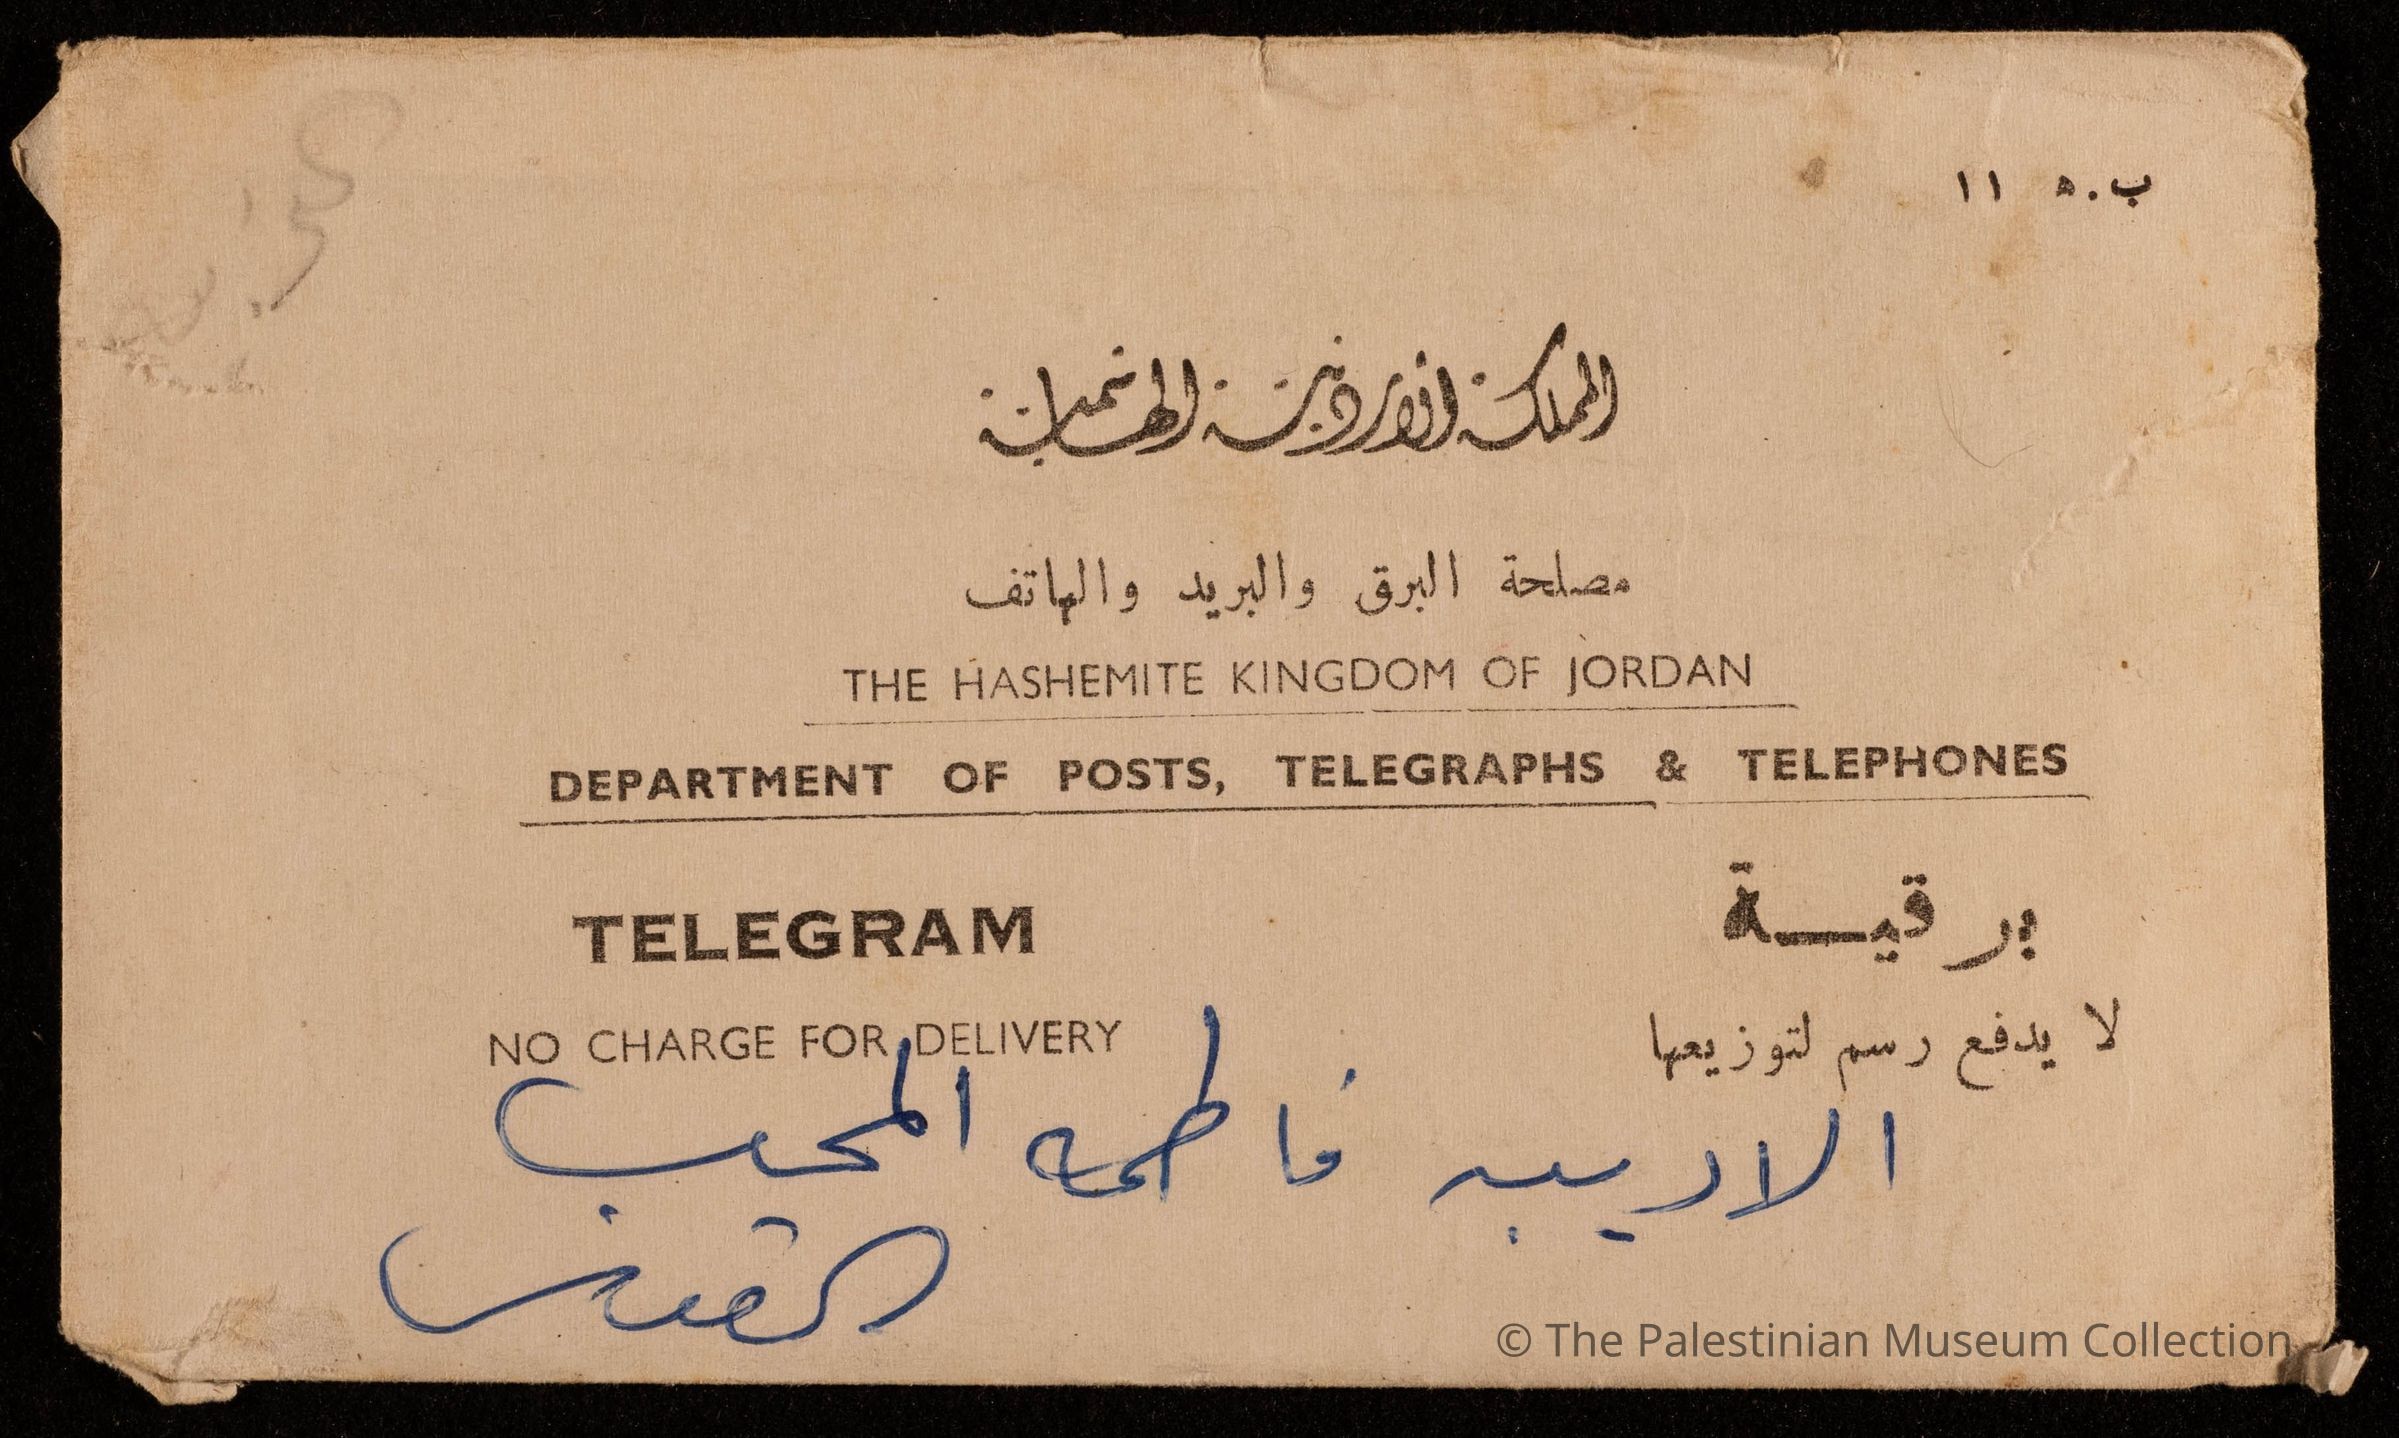 ب.ه ١١
المملكة الاردنية الهاشمية
مصلحة البرق والبريد والهاتف
THE HASHEMITE KINGDOM OF JORDAN
DEPARTMENT OF POSTS, TELEGRAPHS & TELEPHONES
TELEGRAM برقيــة
NO CHARGE FOR DELIVERY لا يدفع رسم لتوزيعها
الاديبه فاطمه المحب
القدس
© The Palestinian Museum Collection